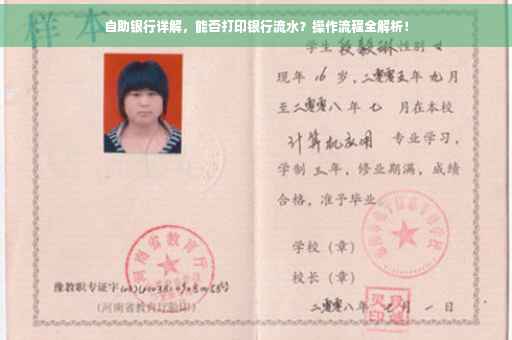 自助银行详解，能否打印银行流水？操作流程全解析！
样本
学生段毅琳性别女
现年16岁，二零零五年九月
至二零零八年七月在本校
计算机应用 专业学习，
学制三年，修业期满，成绩
合格，准予毕业
学校（章）
校长（章）
二零零八年七月一日
河南省教育厅
豫教职专证字
（河南省教育厅验印）